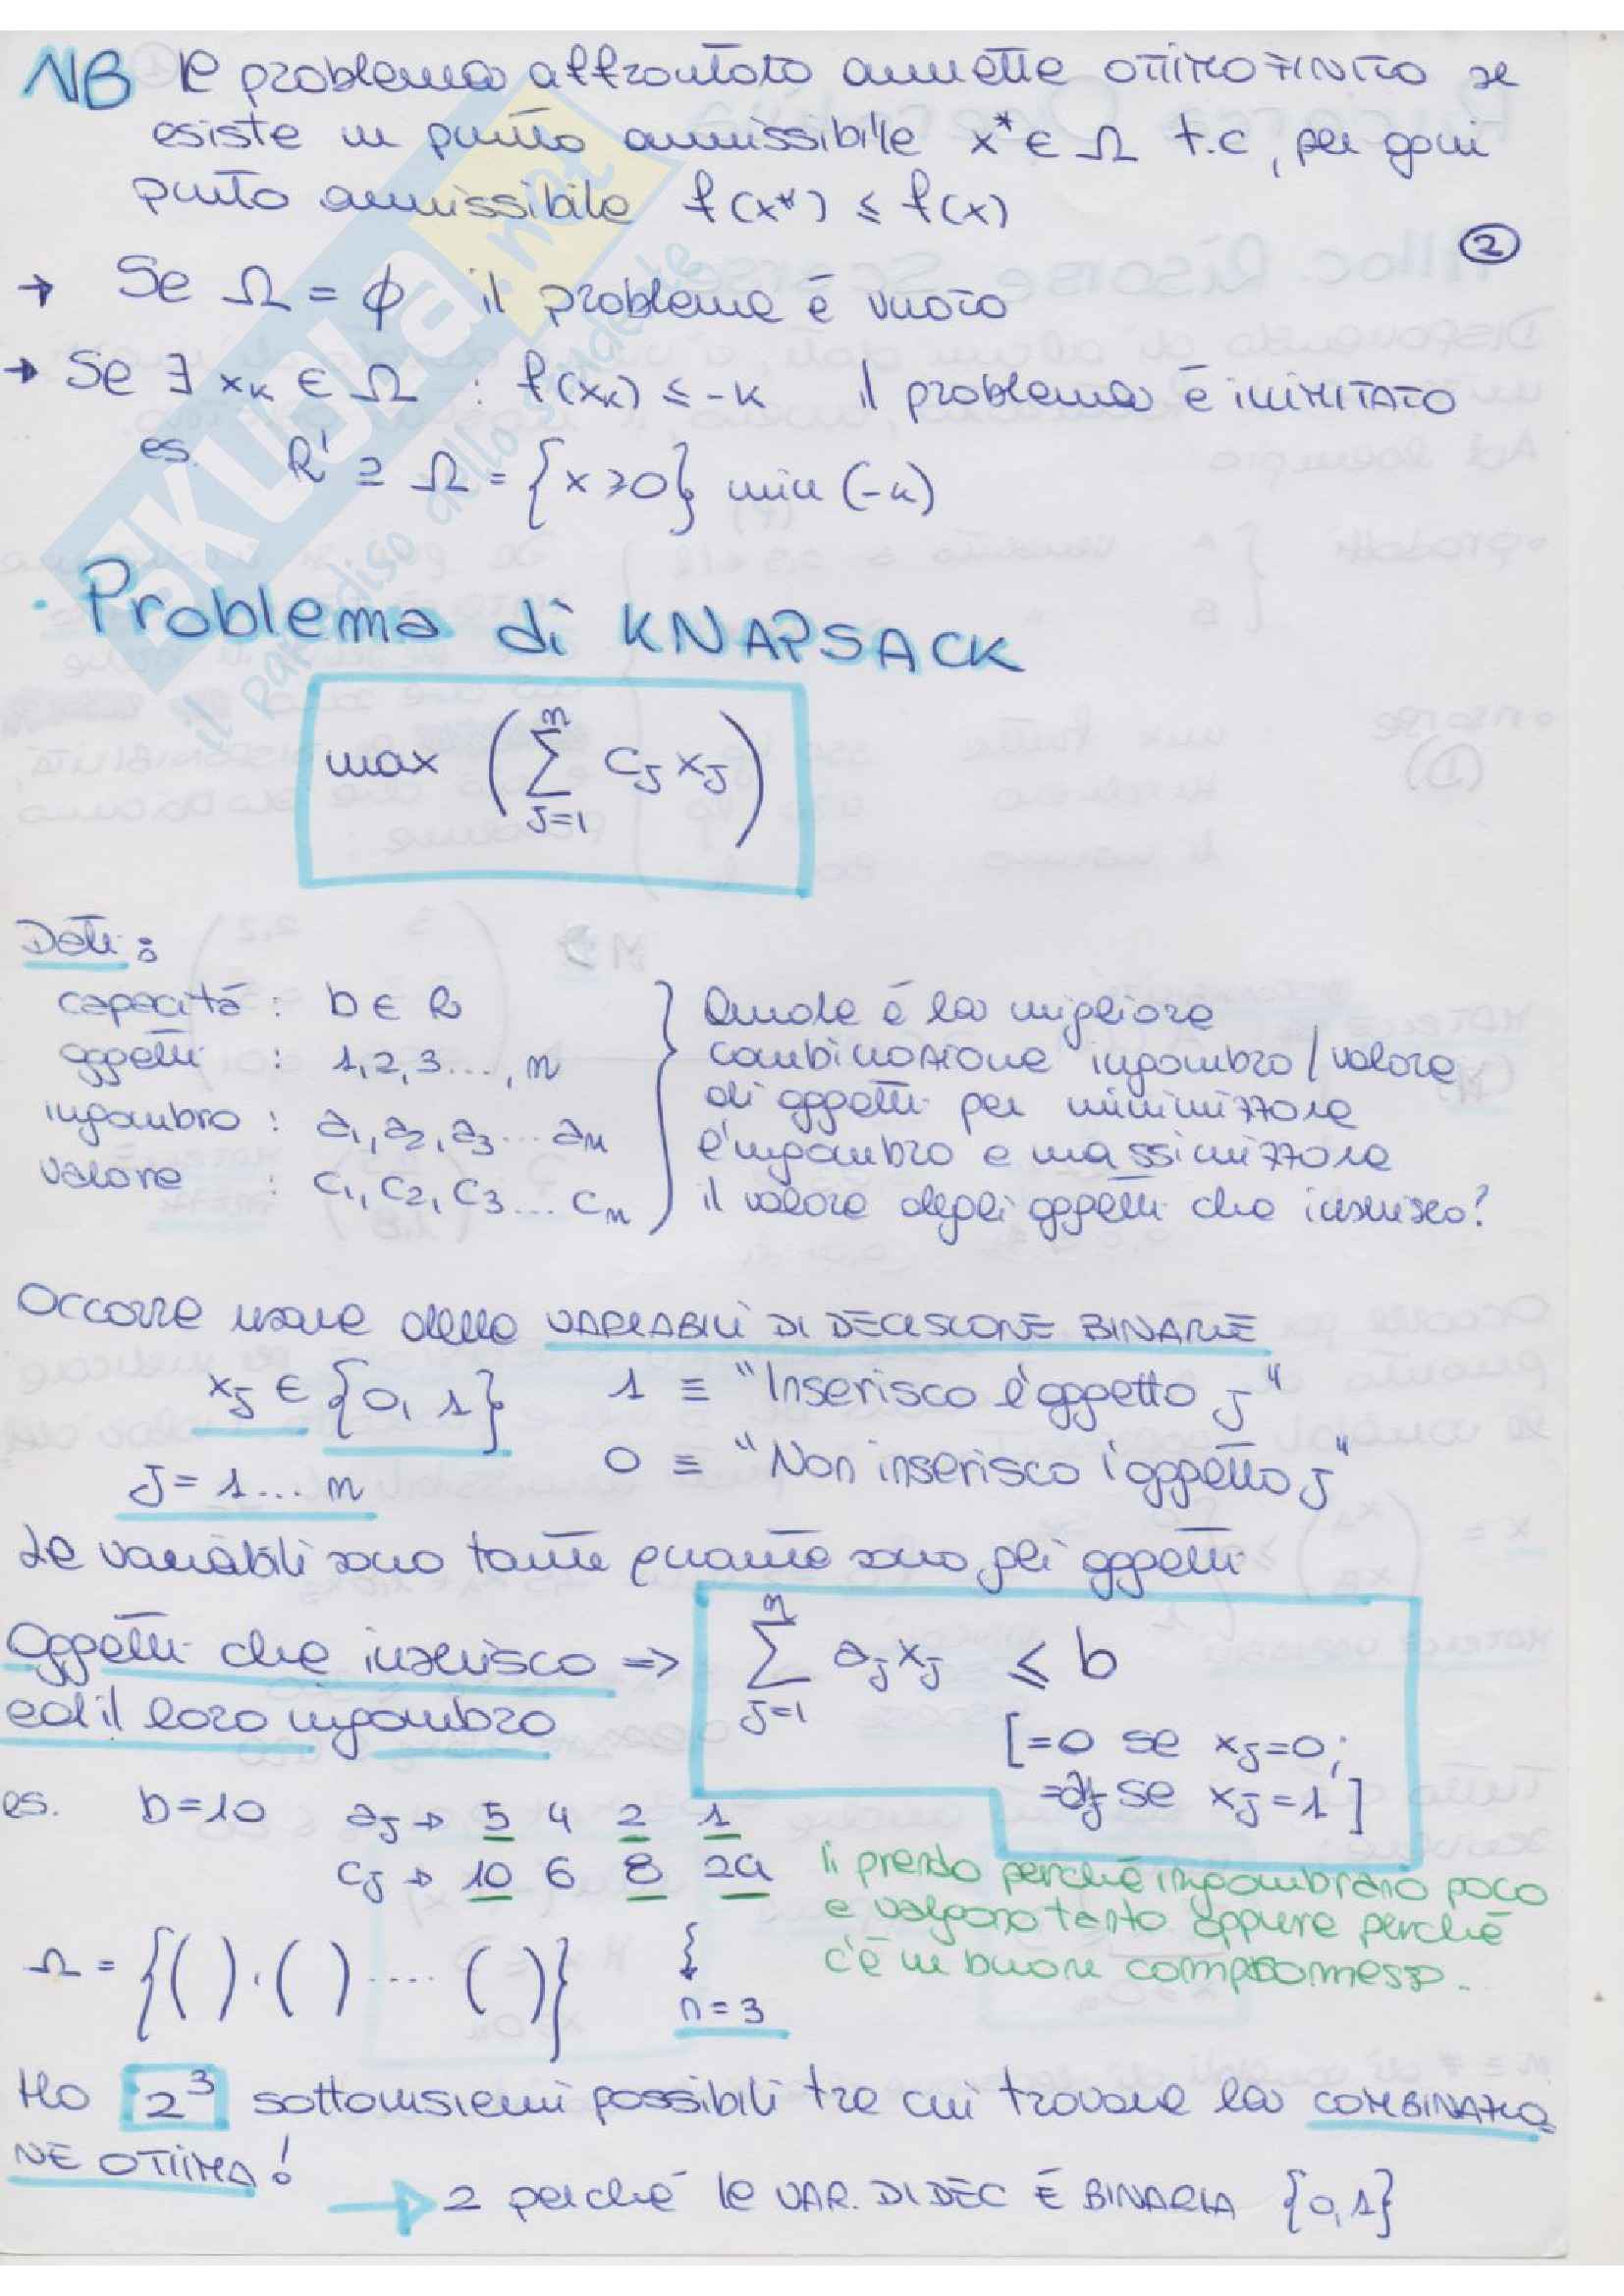 NB Il problema affrontato ammette OTTIMO FINITO se
esiste un punto ammissibile x* ∈ Ω t.c, per ogni
punto ammissibile f(x*) ≤ f(x)
②
→ Se Ω = ϕ il problema è vuoto
→ Se ∃ xₖ ∈ Ω : f(xₖ) ≤ -k il problema è ILLIMITATO
es. R' ⊇ Ω = {x ≥ 0} min (-x)
SKUOLA.net
il paradiso dello studente
· Problema di KNAPSACK
max (∑ⁿⱼ₌₁ cⱼ xⱼ)
Dati:
capacità : b ∈ R
oggetti : 1,2,3..., n
ingombro : a₁, a₂, a₃ ... aₙ
valore : c₁, c₂, c₃ ... cₙ
Quale è la migliore
combinazione ingombro / valore
di oggetti per minimizzare
l'ingombro e massimizzare
il valore degli oggetti che inserisco?
Occorre usare delle VARIABILI DI DECISIONE BINARIE
xⱼ ∈ {0, 1} 1 ≡ "Inserisco l'oggetto j"
J = 1 ... n 0 ≡ "Non inserisco l'oggetto j"
Le variabili sono tante quante sono gli oggetti
Oggetti che inserisco => ∑ⁿⱼ₌₁ aⱼ xⱼ ≤ b
ed il loro ingombro
[=0 se xⱼ=0;
=aⱼ se xⱼ=1]
es. b=10 aⱼ → 5 4 2 1
cⱼ → 10 6 8 20
li prendo perché ingombrano poco
e valgono tanto oppure perché
c'è un buon compromesso.
Ω = {( ), ( ) .... ( )}
n = 3
Ho 2³ sottoinsiemi possibili tra cui trovare la COMBINAZIO
NE OTTIMA!
→ 2 perché le VAR. DI DEC È BINARIA {0,1}